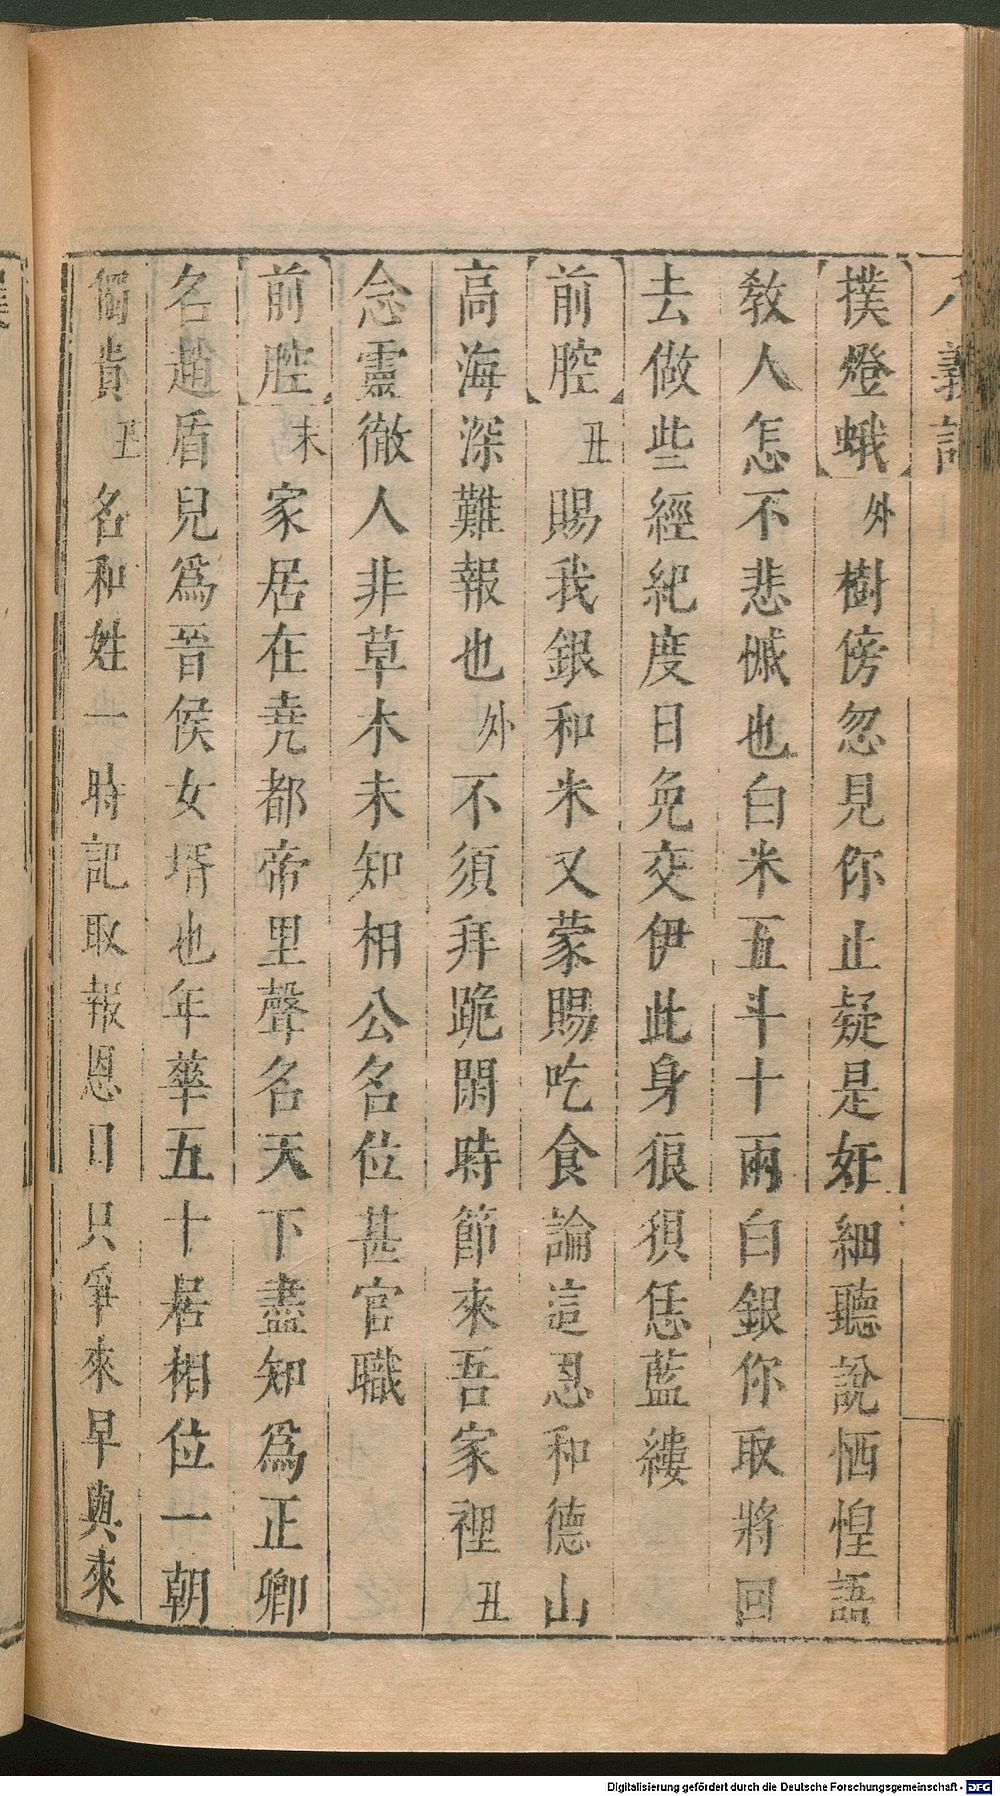 八義記
【撲燈蛾】外樹傍忽見你止疑是奸細聽說恓惶語
教人怎不悲慽也白米五斗十兩白銀你取將回
去做些經紀度日免交伊此身狠狽恁藍縷
【前腔】丑賜我銀和米又蒙賜吃食論這恩和德山
高海深難報也外不須拜跪閑時節來吾家裡丑
念靈徹人非草木未知相公名位甚官職
【前腔】末家居在堯都帝里聲名天下盡知為正卿
名趙盾兒為晉侯女壻也年華五十居相位一朝
獨貴丑名和姓一時記取報恩日只爭來早與來
Digitalisierung gefördert durch die Deutsche Forschungsgemeinschaft - DFG